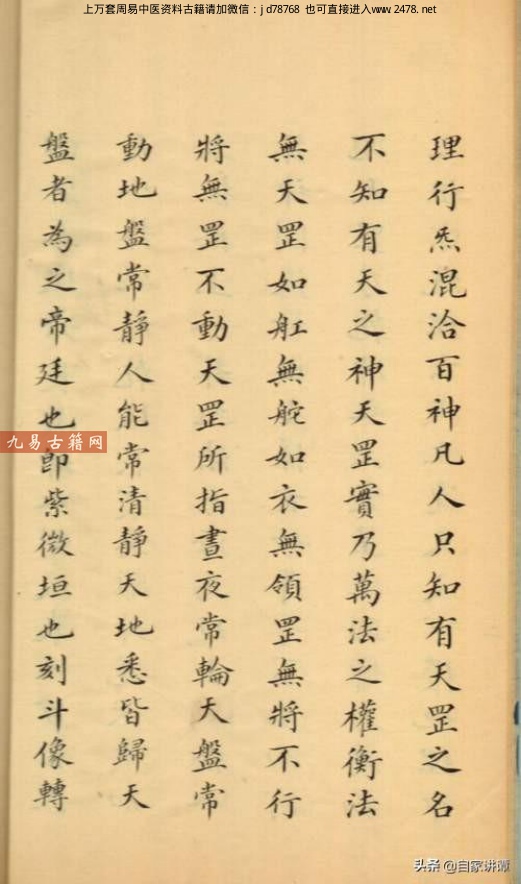 上万套周易中医资料古籍请加微信：jd78768 也可直接进入www.2478.net
理行炁混洽百神凡人只知有天罡之名
不知有天之神天罡實乃萬法之權衡法
無天罡如舡無舵如衣無領罡無將不行
將無罡不動天罡所指晝夜常輪天盤常
動地盤常靜人能常清靜天地悉皆歸天
盤者為之帝廷也即紫微垣也刻斗像轉
九易古籍网
头条 @自家讲谭